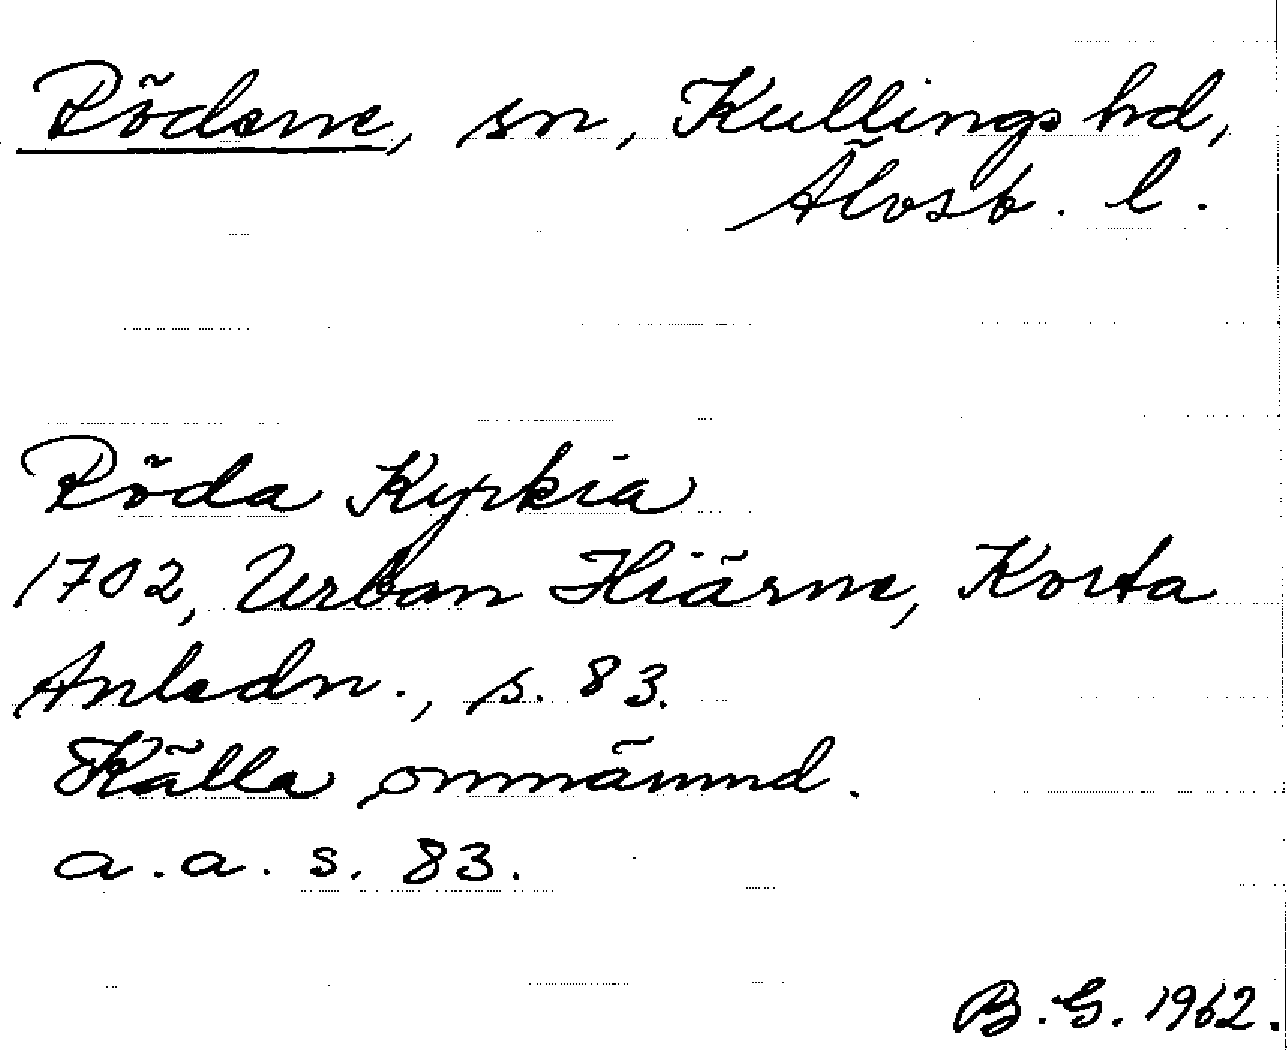 Rödene, sn, Kullings hd,
Älvsb. l.
Röda Kyrkia
1702, Urban Hiärne, Korta
Anledn., s. 83.
Källa omnämnd.
a.a. s. 83.
B.G. 1962.